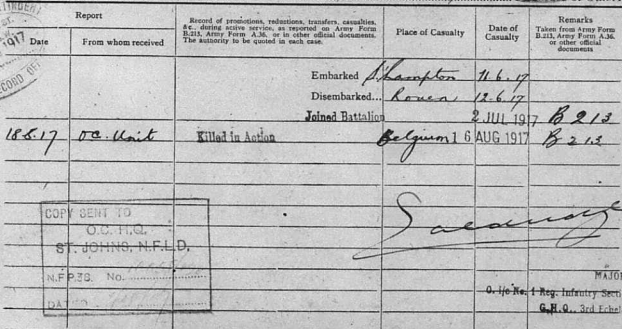 Report
Record of promotions, reductions, transfers, casualties,
&c., during active service, as reported on Army Form
B.213, Army Form A.36, or in other official documents.
The authority to be quoted in each case.
Place of Casualty
Date of
Casualty
Remarks
Taken from Army Form
B.213, Army Form A.36,
or other official
documents
Date
From whom received
1917
RECORD OF
Embarked S'hampton 11.6.17
Disembarked... Rouen 12.6.17
Joined Battalion 2 JUL 1917 B 213
18.8.17 O.C. Unit Killed in Action Belgium 16 AUG 1917 B 213
COPY SENT TO
O.C. H.Q.
ST. JOHNS, N.F.L.D.
N.F.P.38. No.
DATED
MAJOR
O. i/c No. 1 Reg. Infantry Secti
G.H.Q., 3rd Echel